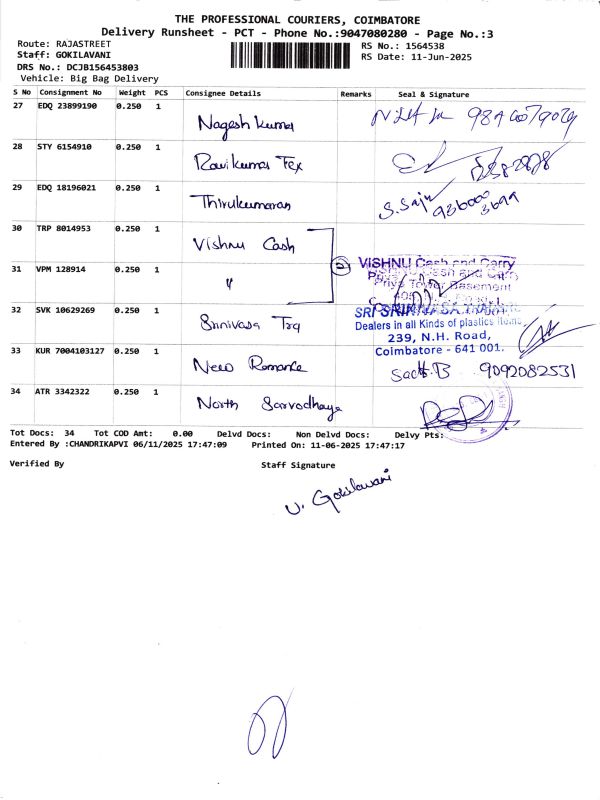 THE PROFESSIONAL COURIERS, COIMBATORE
Delivery Runsheet - PCT - Phone No.:9047080280 - Page No.:3
Route: RAJASTREET
Staff: GOKILAVANI
DRS No.: DCJB156453803
Vehicle: Big Bag Delivery
RS No.: 1564538
RS Date: 11-Jun-2025
S No Consignment No Weight PCS Consignee Details Remarks Seal & Signature
27 EDQ 23899190 0.250 1 Nagesh Kumar
28 STY 6154910 0.250 1 Ravikumar Tex
29 EDQ 18196021 0.250 1 Thirukumaran S.Saju 936000 3699
30 TRP 8014953 0.250 1 Vishnu Cash
31 VPM 128914 0.250 1 " 2 VISHNU Cash and Carry
Basement
32 SVK 10629269 0.250 1 Srinivasa Trg
Dealers in all Kinds of plastics items
239, N.H. Road,
Coimbatore - 641 001.
33 KUR 7004103127 0.250 1 New Romance 9092082531
34 ATR 3342322 0.250 1 North Sarvodhaya
Tot Docs: 34 Tot COD Amt: 0.00 Delvd Docs: Non Delvd Docs: Delvy Pts:
Entered By :CHANDRIKAPVI 06/11/2025 17:47:09 Printed On: 11-06-2025 17:47:17
Verified By Staff Signature
V. Gokilavani